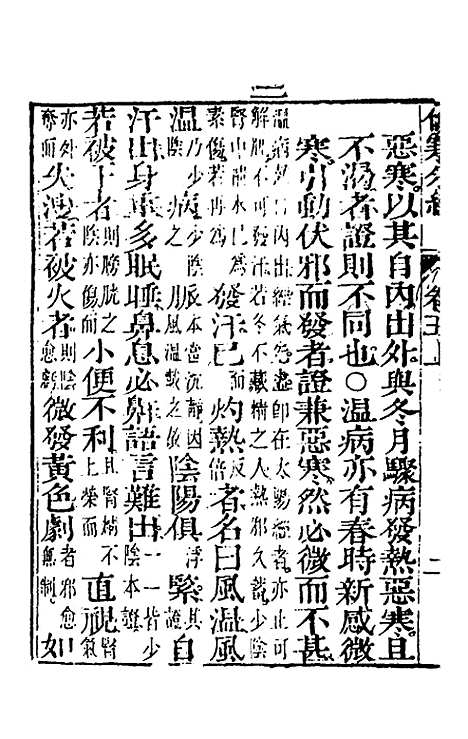 傷寒分經 卷五上 二
惡寒以其自內出外與冬月驟病發熱惡寒且
不渴者證則不同也○溫病亦有春時新感微
寒引動伏邪而發者證兼惡寒然必微而不甚
溫病熱自內出經氣先虛即在太陽經者亦止可
解肌不可發汗若不藏精之人熱邪久蓄少陰
腎中精水已為素傷若再為發汗已而灼熱反倍者名曰風溫風
溫乃少陰病之脈本當沉靜因風溫載之故陰陽俱浮緊其證自
汗出身重多眠睡鼻息必鼾語言難出一一皆少陰本證
若被下者則膀胱之陰亦傷而小便不利且腎枯不上榮而直視腎氣
亦外奪而失溲若被火者則陰愈虧微發黃色劇者邪愈無制如